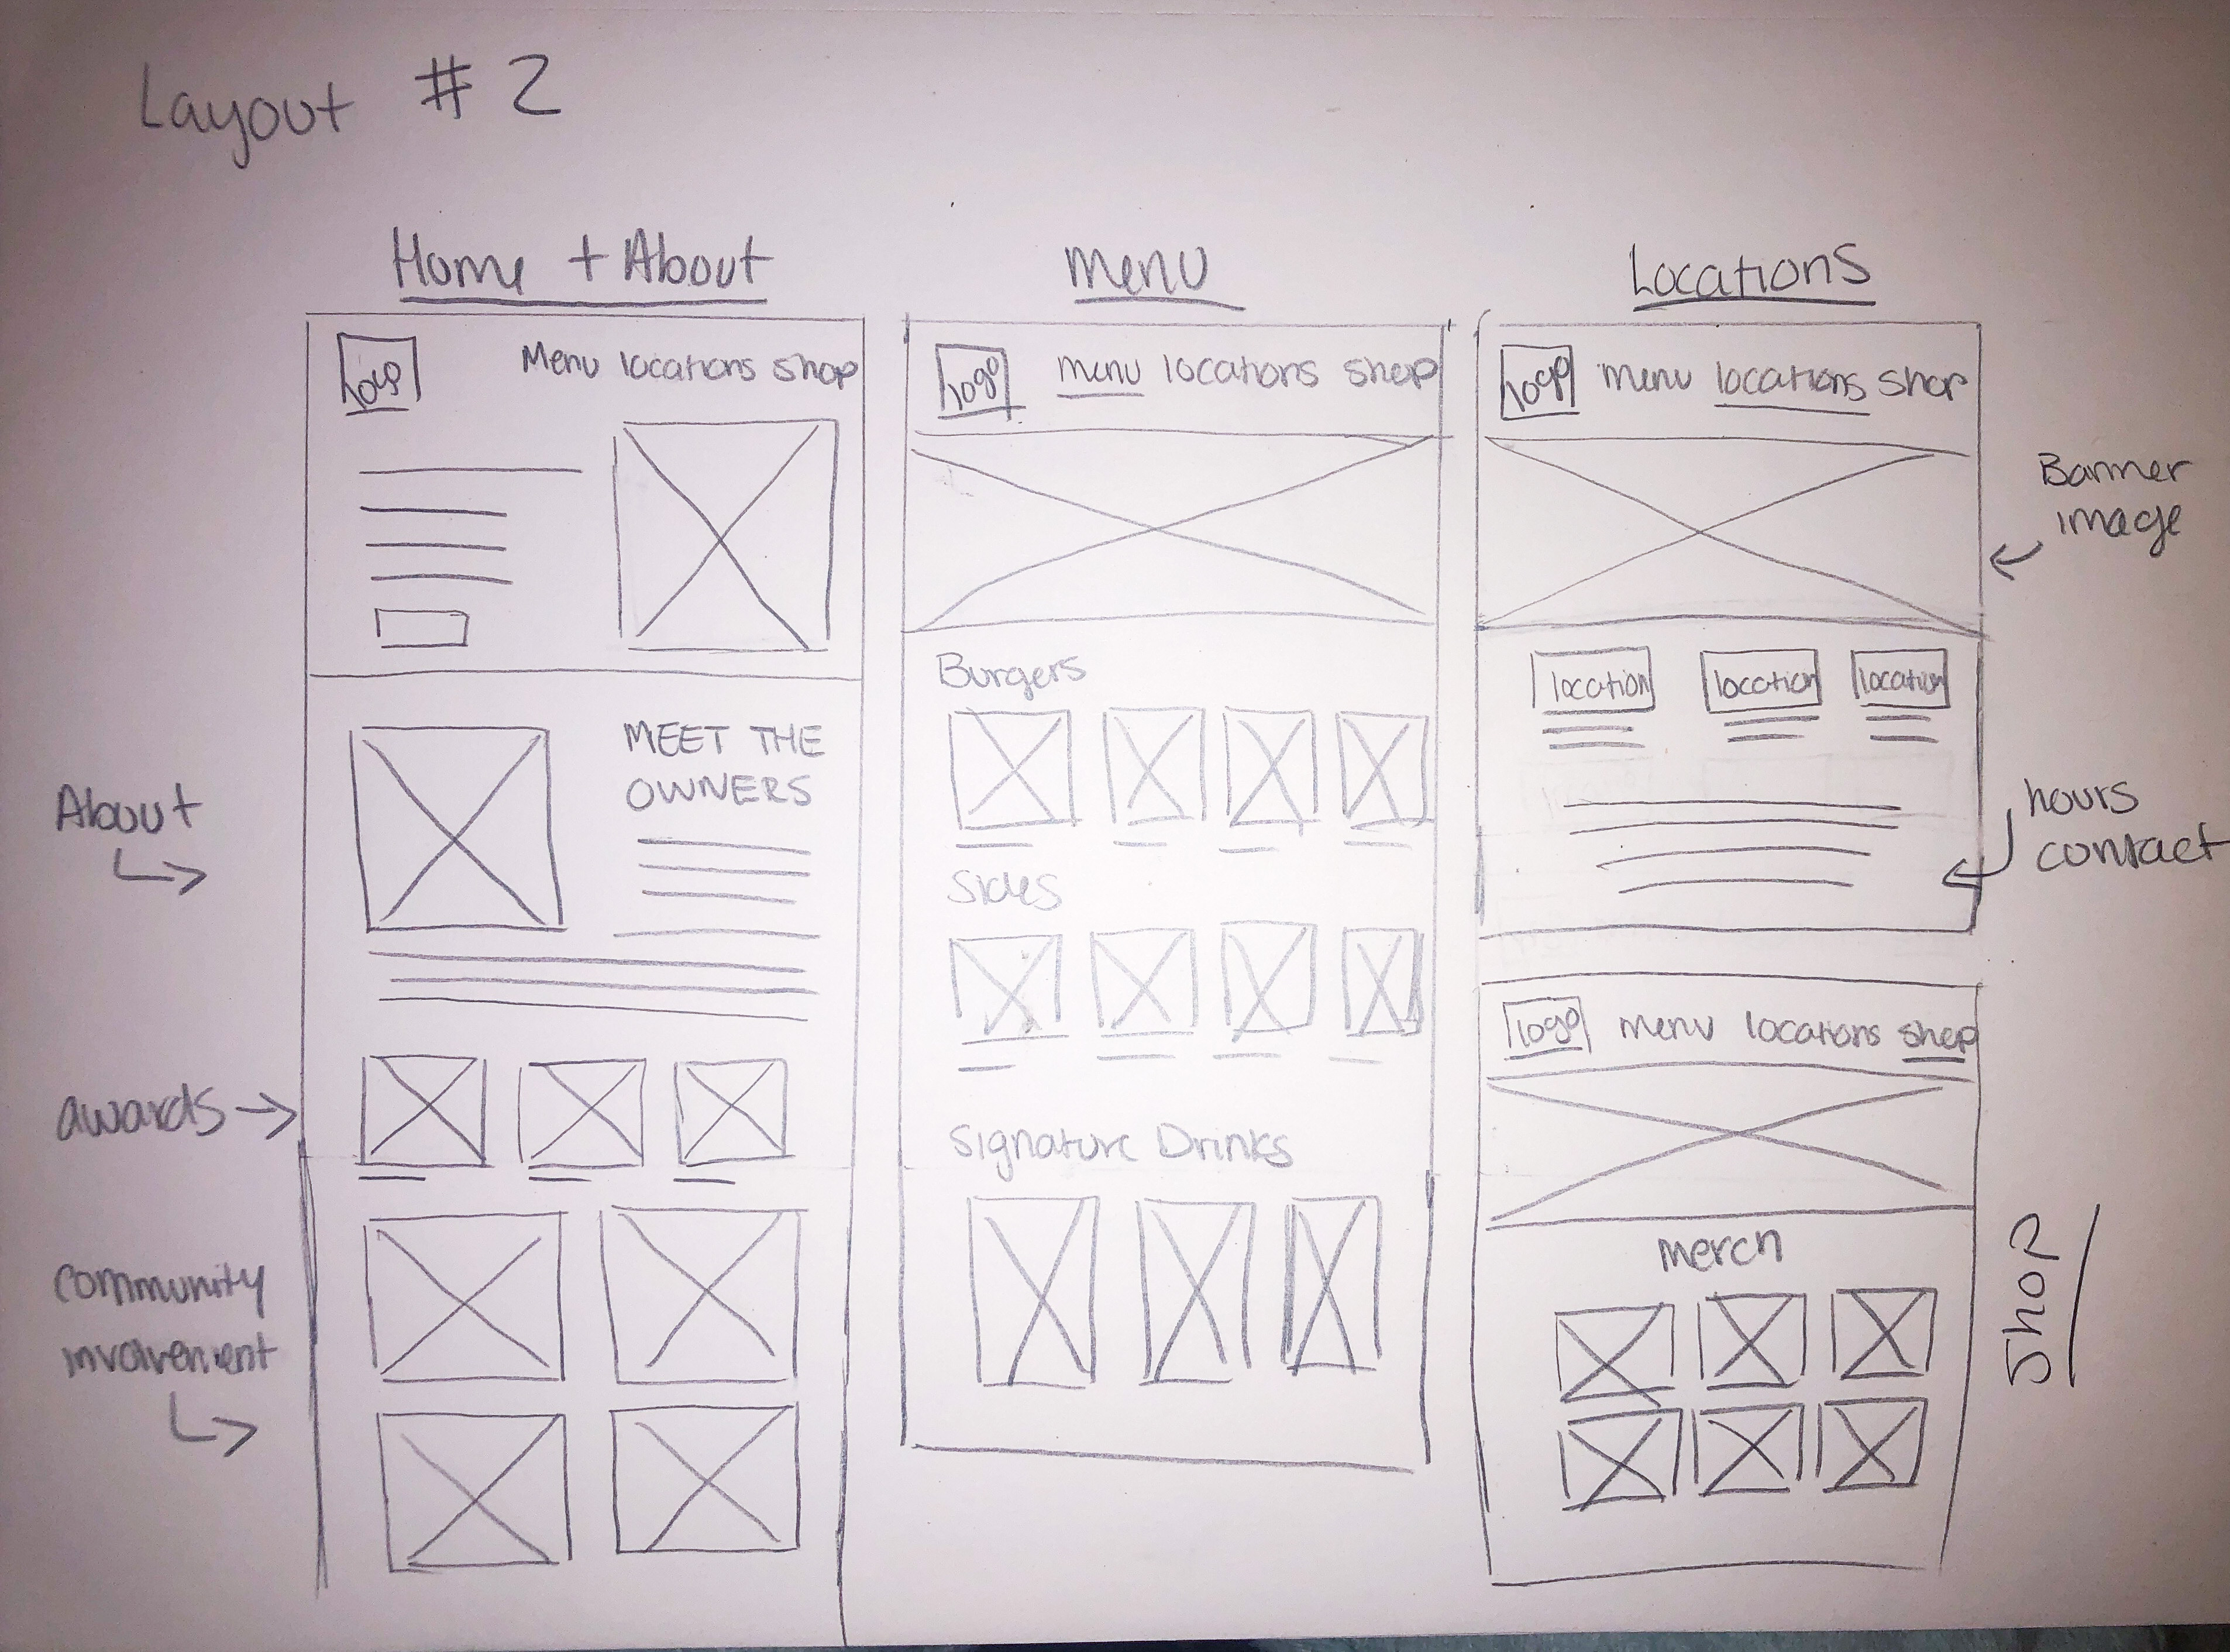 Layout #2
Home + About
logo Menu locations shop
MEET THE
OWNERS
About
awards
community
involvement
Menu
logo menu locations shop
Burgers
Sides
Signature Drinks
Locations
logo menu locations shop
Banner
image
location location location
hours
contact
logo menu locations shop
merch
Shop